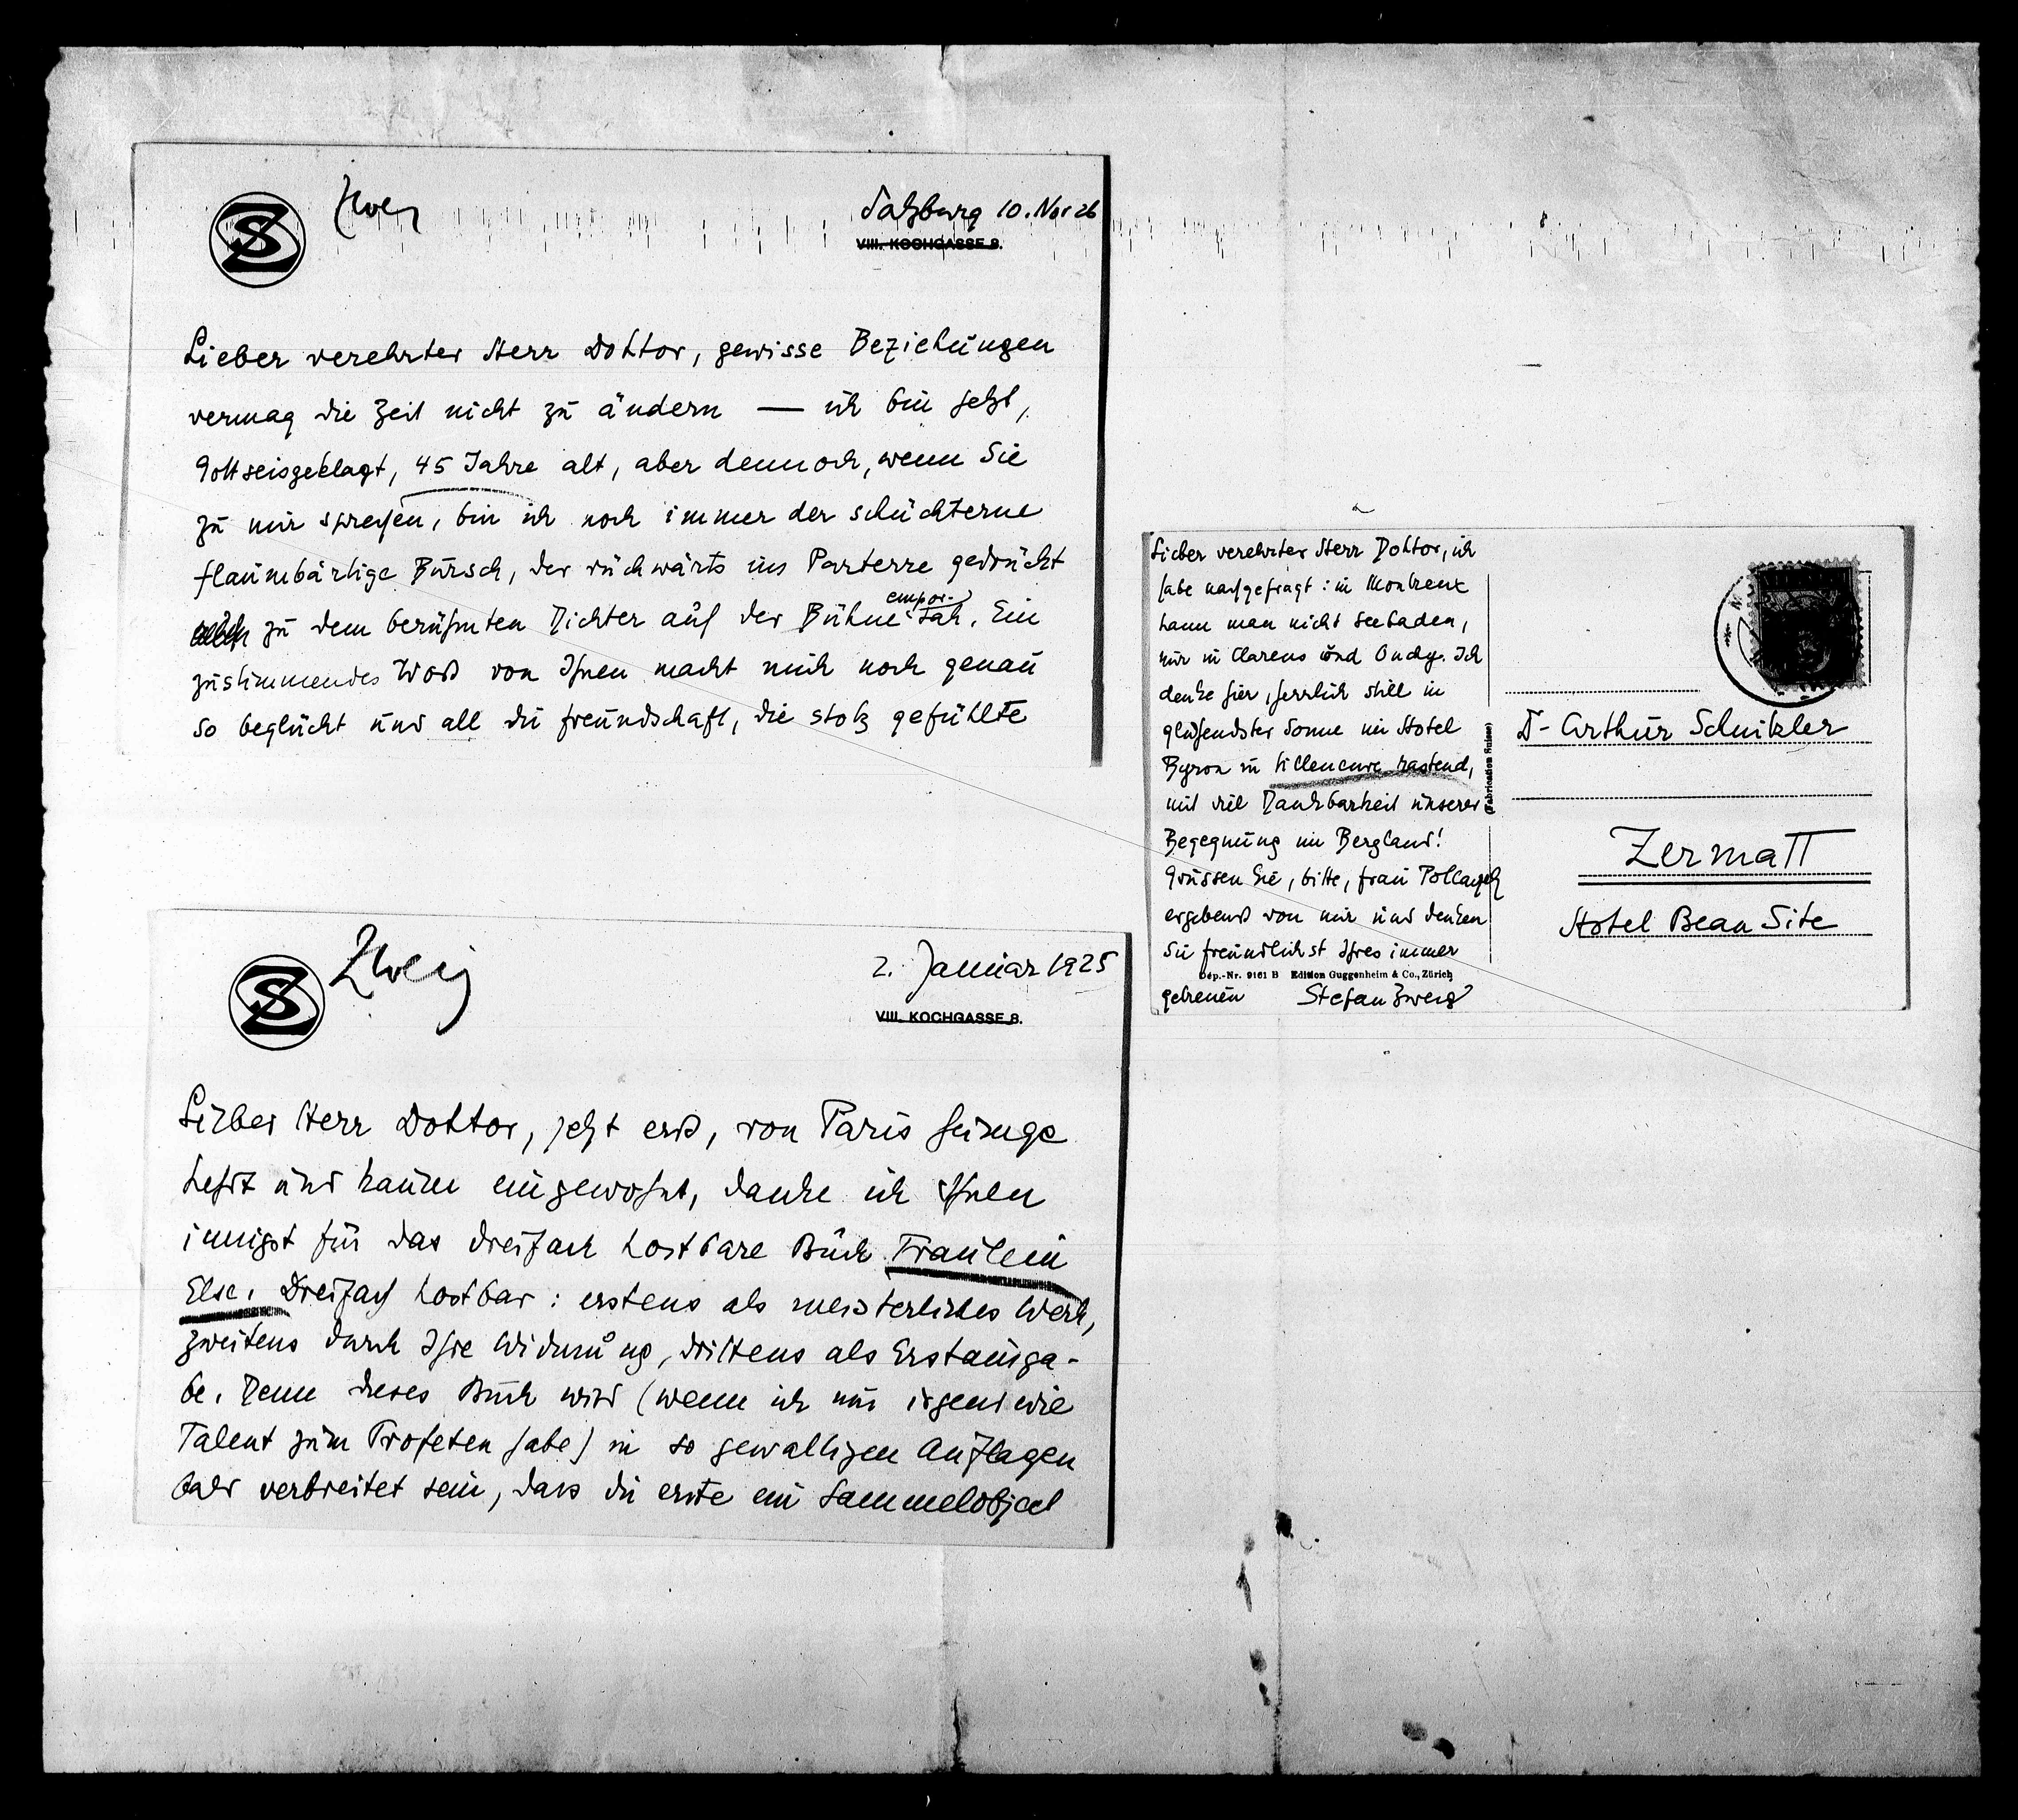 Zweig
Salzburg 10. Nov 26
VIII. KOCHGASSE 8.
Lieber verehrter Herr Doktor, gewisse Beziehungen
vermag die Zeit nicht zu ändern — ich bin jetzt,
gottseisgeklagt, 45 Jahre alt, aber dennoch, wenn Sie
zu mir sprechen, bin ich noch immer der schüchterne
flaumbärtige Bursch, der rückwärts ins Parterre gedrückt
zu dem berühmten Dichter auf der Bühne emporsah. Ein
zustimmendes Wort von Ihnen macht mich noch genau
so beglückt und all die Freundschaft, die stolz gefühlte
Zweig
2. Januar 1925
VIII. KOCHGASSE 8.
Lieber Herr Doktor, jetzt erst, von Paris heimge
kehrt und kaum eingewohnt, danke ich Ihnen
innigst für das dreifach kostbare Buch Fraulein
Else. Dreifach kostbar: erstens als meisterliches Werk,
zweitens durch Ihre Widmung, drittens als Erstausga-
be. Denn dieses Buch wird (wenn ich nur irgendwie
Talent zum Profeten habe) in so gewaltigen Auflagen
bald verbreitet sein, dass die erste ein Sammelobject
Lieber verehrter Herr Doktor, ich
habe nachgefragt: in Montreux
kann man nicht seebaden,
nur in Clarens und Ouchy. Ich
denke hier, herrlich still in
glühendster Sonne im Hotel
Byron in Villeneuve rastend,
mit viel Dankbarkeit unserer
Begegnung im Bergland!
Grüssen Sie, bitte, Frau Pollaczek
ergebenst von mir und denken
Sie freundlichst Ihres immer
Dép.-Nr. 9161 B Edition Guggenheim & Co., Zürich
getreuen Stefan Zweig
(Fabrication Suisse)
Dr Arthur Schnitzler
Zermatt
Hotel Beau Site